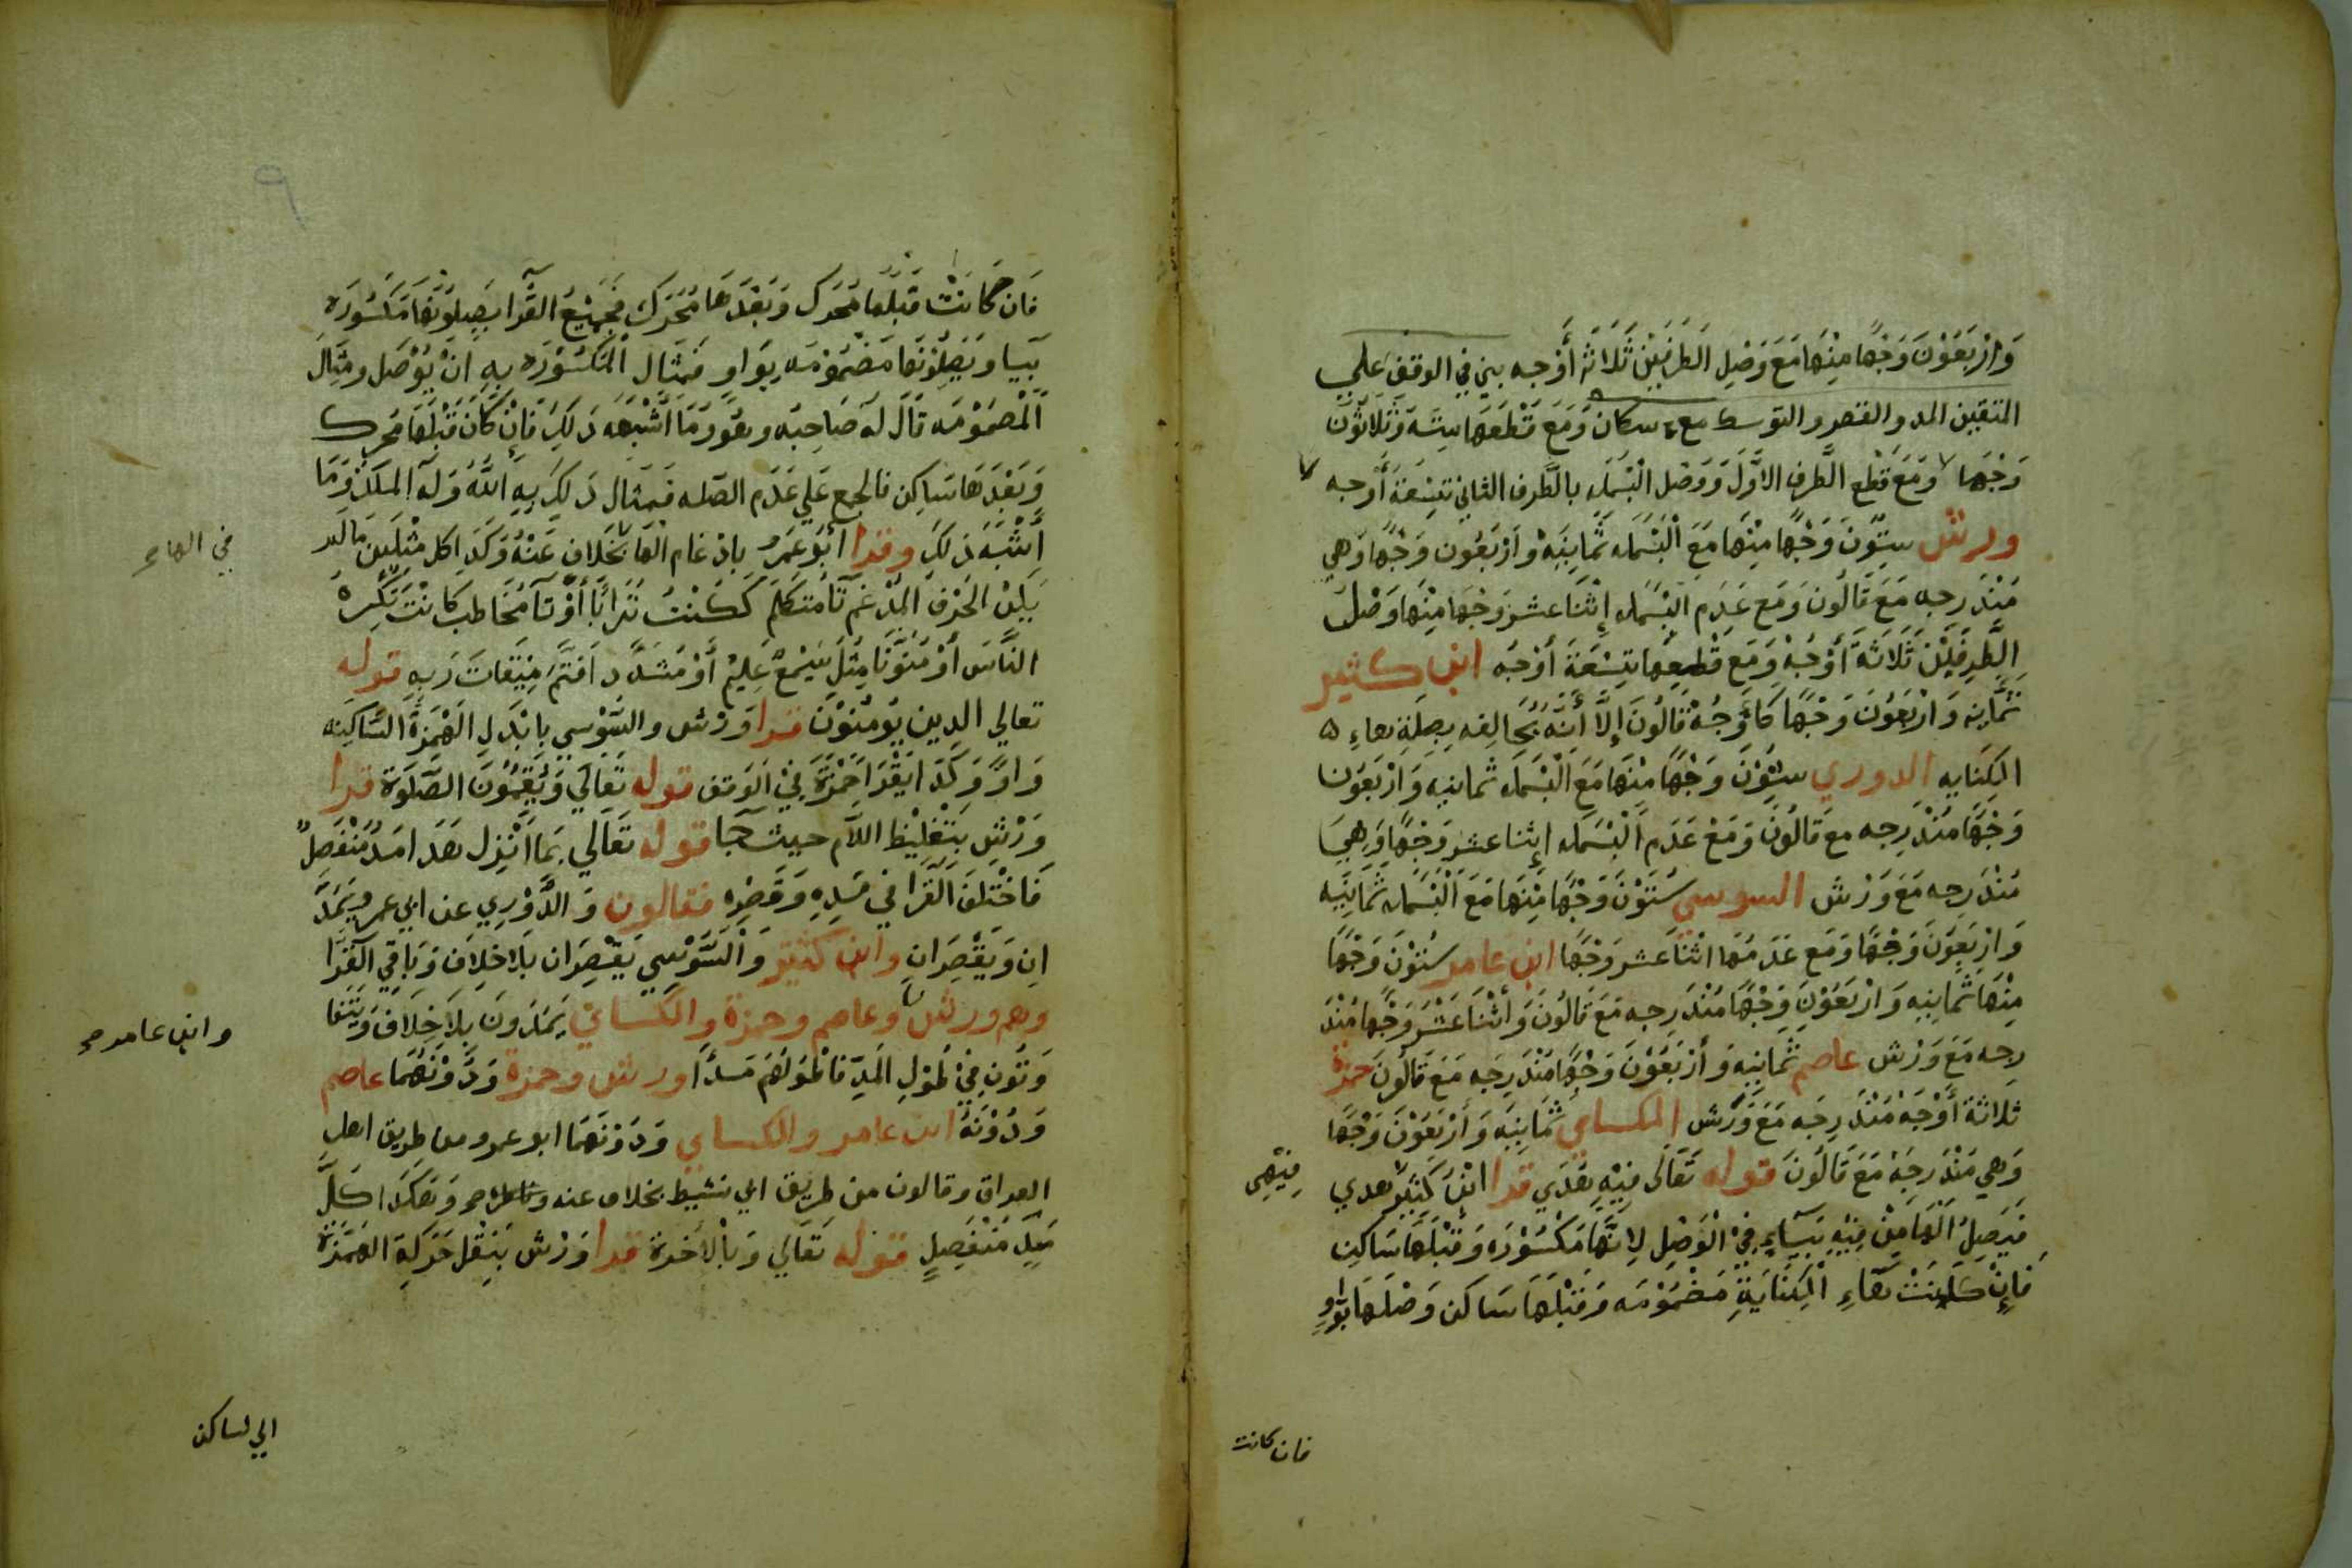 وَارْبَعُوْنَ وَجْهًا مِنْهَا مَعَ وَصْلِ الطَرَفَيْنَ ثَلَاثَةُ أَوْجه بني في الوقف عَلي
المتقين المد والقصر والتوسط مع اسكان وَمَعَ قَطْعَهَا سِتَّه وَثَلَاثُوْنَ
وَجْهًا وَمَعَ قَطْع الطَّرفِ الاوَّلَ وَوَصْل الْبَسْمَله بالطَّرف الثاني تِسْعَةَ أَوجه
ولرش سِتّوُنَ وَجْهًا مِنْهَا مَعَ الْبَسْمَله ثَمَانِيَةْ وَارْبَعُون وَجْهًا وَهي
مُنْدَرِجه مَعَ قَالُونَ وَمَع عَدَم البْسَمَله إِثْنَا عشر وَجْهَا مِنْهَا وَصْلُ
الِطَّرفَيْن ثَلَاثَةَ أَوْجُهْ وَمَع قَطْعِهِا تِسْعَةَ أَوْجُه ابن كثير
ثَمَّانِه وَارْبَعُونَ وَجْهًا كَأَوْجُهْ قَالُونَ إِلَّا أَنَّهُ يُخَالِفه بِصِلَةِ هاءِ
الكِنَايه الدوري سِتُّوْنَ وَجْهًا مِنْهَا مَعَ الْبَسْمَله ثمانيه وَارْبَعَوُن
وَجْهًا مُنْدَرِجه مع قَالُونَ وَمَعْ عَدَم الْبَسْمَله اِثنا عشر وَجْهًا وَهِيَ
مُنْدَرِجه مَعَ وَرْش السوسي سُتَوْنَ وَجْهًا مِنْهَا مَعَ الْبَسْمَله ثَمَانِيَه
وَارْبَعِوُنَ وَجْهًا وَمَع عَدَمُهَا اثْنَا عشر وَجْهًا ابن عامر سُتوْنَ وَجْهًا
مِنْهَا ثَمَانِيِه وَارْبَعَوْنَ وَجْهًا مُنْدَرِجه مَعَ قَالُونَ وَأَثْنَا عَشَرْ وَجْهًا مُنْدَ
رِجه مَعَ وَرْش عاصم ثَمانِيَه وَأرْبَعُوْنَ وَجْهًا مُنْدَرِجَه مَعَ قَالُونَ حمزة
ثلاثة أَوْجَهْ مُنْدَرِجَه مَعَ وَرْش الكساي ثَمَانِيَه وَأَرْبَعُوْنَ وَجْهًا
وَهي مُنْدَرِجَهْ مَعَ قَالُونَ قوله تَعَالَى فِيْهِ هُدَي قرا ابْنُ كَثِيْر هدي
فيَصِلُ الْهَا مِنْ فِيْهِ بَيآءٍ فِيْ الْوَصْلِ لِانَّهَا مَكْسُوْرَه وَقَبْلَهَا سَاكِن
فَإِنْ كَانَتْ هَاءِ الْكِنَايَةِ مَضْمُوْمَه وَقَبْلَهَا سَاكن وَصَلَهَا بِوَاوٍ
فِيْهِي
فان كانت
فَان كَانَتْ قَبْلَهَا مُحَرك وَبَعْدَهَا مُحَرَك فَجَمِيْعُ القُرَّا يَصِلُوْنَهَا مَكسُورَه
بَيا وَيَصِلُوْنَهَا مَضْمُوْمَه بِوَاوٍ فَمثَال الْمَكسُوْرَه بِهِ انَ يُوْصَل ومِثَالَ
الْمَضْمُوْمَه قَالَ لَهُ صَاحِبُه وهُوَ وَمَا أَشْبَهَه ذَلِكَ فَإِنْ كَانَ قَبْلَهَا مُحرك
وَبَعْدَهَا سَاكِن فالجمع عَلي عَدَم الصّله فَمثَال ذَلِكَ بِهِ اللَّهُ وَلَهُ الملكُ وَمَا
أَشْبَهَ ذَلِكَ وقرا أبُو عَمرُ بادْغام الهَا بخَلاف عَنْهُ وَكَذَا كل مثْلَين مَا لَم
يَكن الحَرْف المُدْغم تَا مُتكَلم كَكُنْتُ تُرَابًا أَوْ تَا مُخَاطب كَانْتَ تكْرِهْ
النَّاسَ أَوْ مُنَوَّنًا مِثْلُ سَمِيْعٌ عَلِيْم أَوْ مُشَدَّد افَتَمَّ مِيْقَاتُ رَبِهِ قوله
تعالي الذِين يُومُنوْنَ قرا وَرْش والسُّوْسِي بِابْدَلِ الْهَمْزَةَ السَّاكِنه
وَاوً وَكَذَا يَقْرَا حَمْزَةَ فِيْ الَوقف قوله تَعَالَي وَيُقِيْمُوُنَ الصَّلَوَة قرا
وَرْش بِتَغْلِيْظ اللَّام حيث جَا قوله تَعَالَي بَمَا أُنْزِل هَذَا مَدُ مُنْفَصِلٌ
فَاخْتَلَفَ الْقُرَا في مَدِهِ وَقَصْرِه فقالون وَالدُّوْرِي عن ابي عمرو يَمُدَّ
انِ وَيَقْصِرَانِ وابن كَثِير وَالسُّوْسِي يَقْصِرَان بَلا خِلاَف وَبَاقِي القُرّا
وهم ورش وعاصم وحمزة والكساي يَمُدُونَ بِلاَ خِلَاف وَيَتَفَا
وَتُون فِيْ طُوْلِ المَدِّ فَاطْوَلُهُمْ مَدًا ورش وحمزة وَدُوْنَهُمَا عاصم
وَدُوْنَهُ ابن عامر والكساي وَدُوْنَهمَا ابو عمرو من طريق اهل
العراق وقالون من طريق ابي نشيط بخلاف عنه وَهَكَذَا كَلَّ
مَدٍّ مُنْفَصِلٍ قوله تَعَالَي وَبالأخرة قرا وَرْش بِنَقْل حَرَكَةِ الهَمْزَة
في الهاء صح
وابن عامر صح
الي لساكن
٩